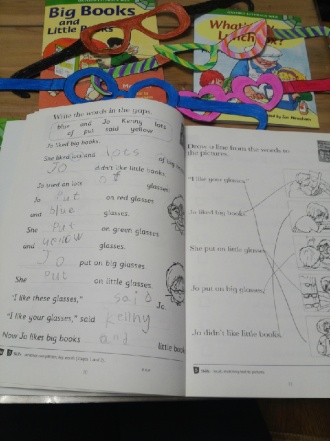 Big Books
and Little Books
What's
Lunch
Write the words in the gaps.
blue and Jo Kenny lots
of put said yellow
Jo liked big books.
She liked lots and lots of big
Jo didn't like little books.
Jo tried on lots of glasses.
Jo Put on red glasses
and blue glasses.
She Put on green glasses
and yellow glasses.
Jo put on big glasses.
She Put on little glasses.
"I like these glasses," said Jo.
"I like your glasses," said Kenny
Now Jo likes big books and little book
Draw a line from the words to
the pictures.
"I like your glasses."
Jo liked big books.
She put on little glasses.
Jo put on big glasses.
Jo didn't like little books.